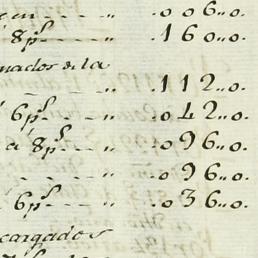 em - - - „ .006„0.
8 p.s - - - „ .160„0.
mados de la
- - - - „ .112„0.
á 6 p.s - - - „ .042„0.
á 8 p.s - - „ .096„0.
- - - - „ .096„0.
6 p.s - - - „ .036„0.
cargados